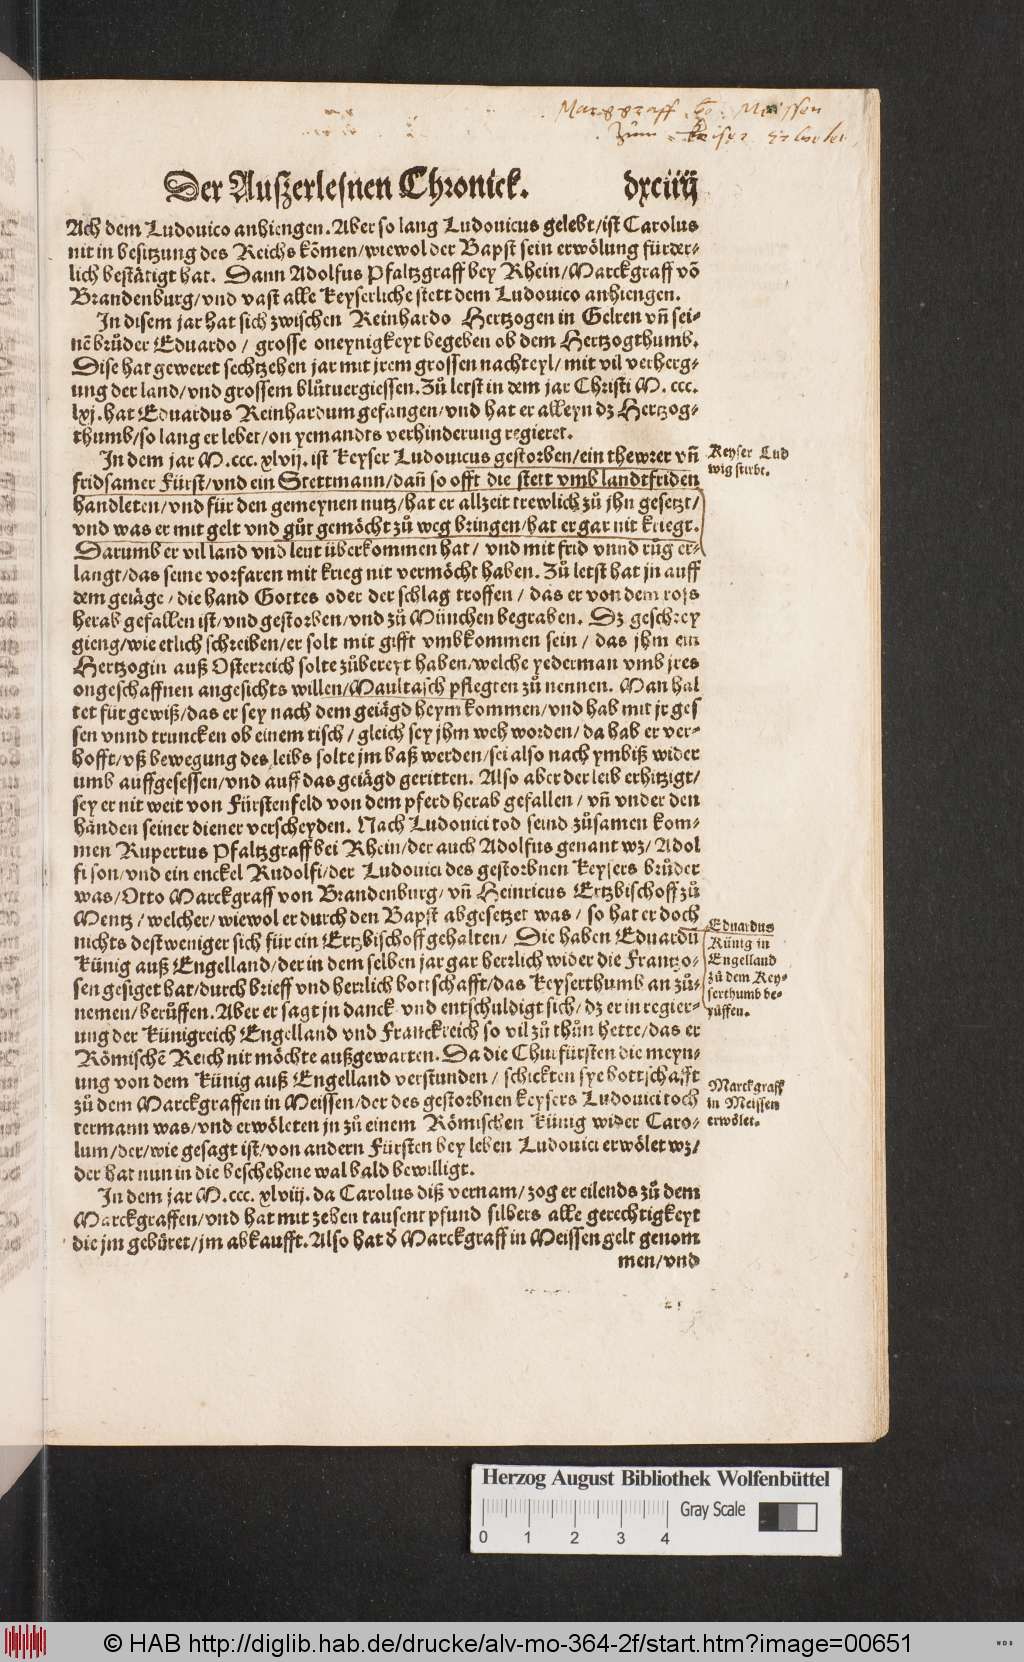 Marggraff Meissen
zum keiser
Der Auszerlesnen Chronick. dxciiij
Ach dem Ludouico anhiengen. Aber so lang Ludouicus gelebt/ist Carolus
nit in besitzung des Reichs kõmen/wiewol der Bapst sein erwölung fürder-
lich bestätigt hat. Dann Adolfus Pfaltzgraff bey Rhein/Marckgraff võ
Brandenburg/vnd vast alle Keyserliche stett dem Ludouico anhiengen.
In disem jar hat sich zwischen Reinhardo Hertzogen in Gelren vñ sei-
nẽ brůder Eduardo/ grosse oneynigkeyt begeben ob dem Hertzogthumb.
Dise hat geweret sechtzehen jar mit jrem grossen nachteyl/mit vil verherg-
ung der land/vnd grossem blůtuergiessen. Zů letst in dem jar Christi M. ccc.
lxj. hat Eduardus Reinhardum gefangen/vnd hat er alleyn dz Hertzog-
thumb/so lang er lebet/on yemandts verhinderung regieret.
In dem jar M.ccc. xlvij. ist Keyser Ludouicus gestorben/ein thewrer vñ
fridsamer Fürst/vnd ein Stettmann/dañ so offt die stett vmb landtfriden
handleten/vnd für den gemeynen nutz/hat er allzeit trewlich zů jhn gesetzt/
vnd was er mit gelt vnd gůt gemöcht zů weg bringen/hat er gar nit kriegt.
Darumb er vil land vnd leut überkommen hat/ vnd mit frid vnnd růg er-
langt/das seine vorfaren mit krieg nit vermöcht haben. Zů letst hat jn auff
dem geiäge/ die hand Gottes oder der schlag troffen/ das er von dem ross
herab gefallen ist/vnd gestorben/vnd zů München begraben. Dz geschrey
gieng/wie etlich schreiben/er solt mit gifft vmbkommen sein/ das jhm ein
Hertzogin auß Osterreich solte zůbereyt haben/welche yederman vmb jres
ongeschaffnen angesichts willen/Maultasch pflegten zů nennen. Man hal
tet für gewiß/das er sey nach dem geiägd heym kommen/vnd hab mit jr ges
sen vnnd truncken ob einem tisch/ gleich sey jhm weh worden/ da hab er ver-
hofft/vß bewegung des leibs solte jm baß werden/sei also nach ymbiß wider
umb auffgesessen/vnd auff das geiägd geritten. Also aber der leib erhitzigt/
sey er nit weit von Fürstenfeld von dem pferd herab gefallen/ vñ vnder den
händen seiner diener verscheyden. Nach Ludouici tod seind zůsamen kom-
men Rupertus Pfaltzgraff bei Rhein/der auch Adolfus genant wz/ Adol
fi son/vnd ein enckel Rudolfi/der Ludouici des gestorbnen Keysers brůder
was/Otto Marckgraff von Brandenburg/ vñ Heinricus Ertzbischoff zů
Mentz/ welcher/wiewol er durch den Bapst abgesetzet was/ so hat er doch
nichts destweniger sich für ein Ertzbischoff gehalten/ Die haben Eduardũ
Künig auß Engelland/der in dem selben jar gar herrlich wider die Frantzo-
sen gesiget hat/durch brieff vnd herrlich bottschafft/das Keyserthumb an zů-
nemen/berůffen. Aber er sagt jn danck vnd entschuldigt sich/ dz er in regier-
ung der Künigreich Engelland vnd Franckreich so vil zů thůn hette/das er
Römischẽ Reich nit möchte außgewarten. Da die Churfürsten die meyn-
ung von dem Künig auß Engelland verstunden/ schickten sye bottschafft
zů dem Marckgraffen in Meissen/der des gestorbnen keysers Ludouici toch
termann was/vnd erwöleten jn zů einem Römischen Künig wider Caro-
lum/der/wie gesagt ist/von andern Fürsten bey leben Ludouici erwölet wz/
der hat nun in die beschehene wal bald bewilligt.
In dem jar M. ccc. xlviij. da Carolus diß vernam/zog er eilends zů dem
Marckgraffen/vnd hat mit zehen tausent pfund silbers alle gerechtigkeyt
die jm gebüret/jm abkaufft. Also hat d' Marckgraff in Meissen gelt genom
men/vnd
Keyser Lud
wig stirbt.
Eduardus
Künig in
Engelland
zů dem Key-
serthumb be-
rüffen.
Marckgraff
in Meissen
erwölet.
Herzog August Bibliothek Wolfenbüttel
0 1 2 3 4 Gray Scale
© HAB http://diglib.hab.de/drucke/alv-mo-364-2f/start.htm?image=00651